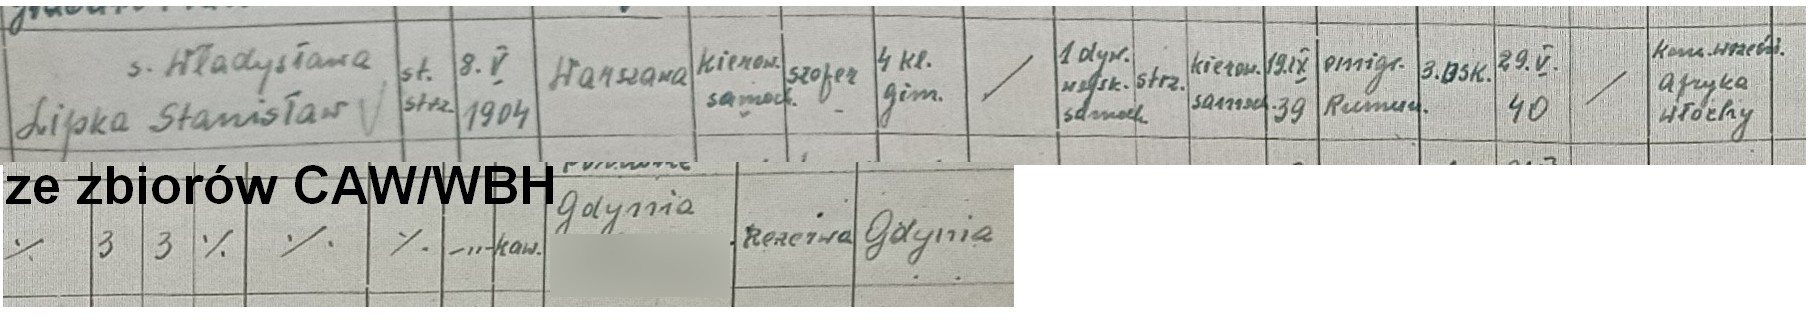 s. Władysława
Lipka Stanisław V
st.
strz.
8. V
1904
Warszawa
kierow.
samoch.
szofer
4 kl.
gim.
/
1 dyw.
wojsk.
samoch
strz.
kierow.
samoch.
19.IX
39
emigr.
Rumun.
3.DSK.
29.V.
40
/
kam. wrześn.
Afryka
Włochy
ze zbiorów CAW/WBH
·/· 3 3 ·/· ·/· ·/· —„— kaw.
Gdynia
Rezerwa
Gdynia